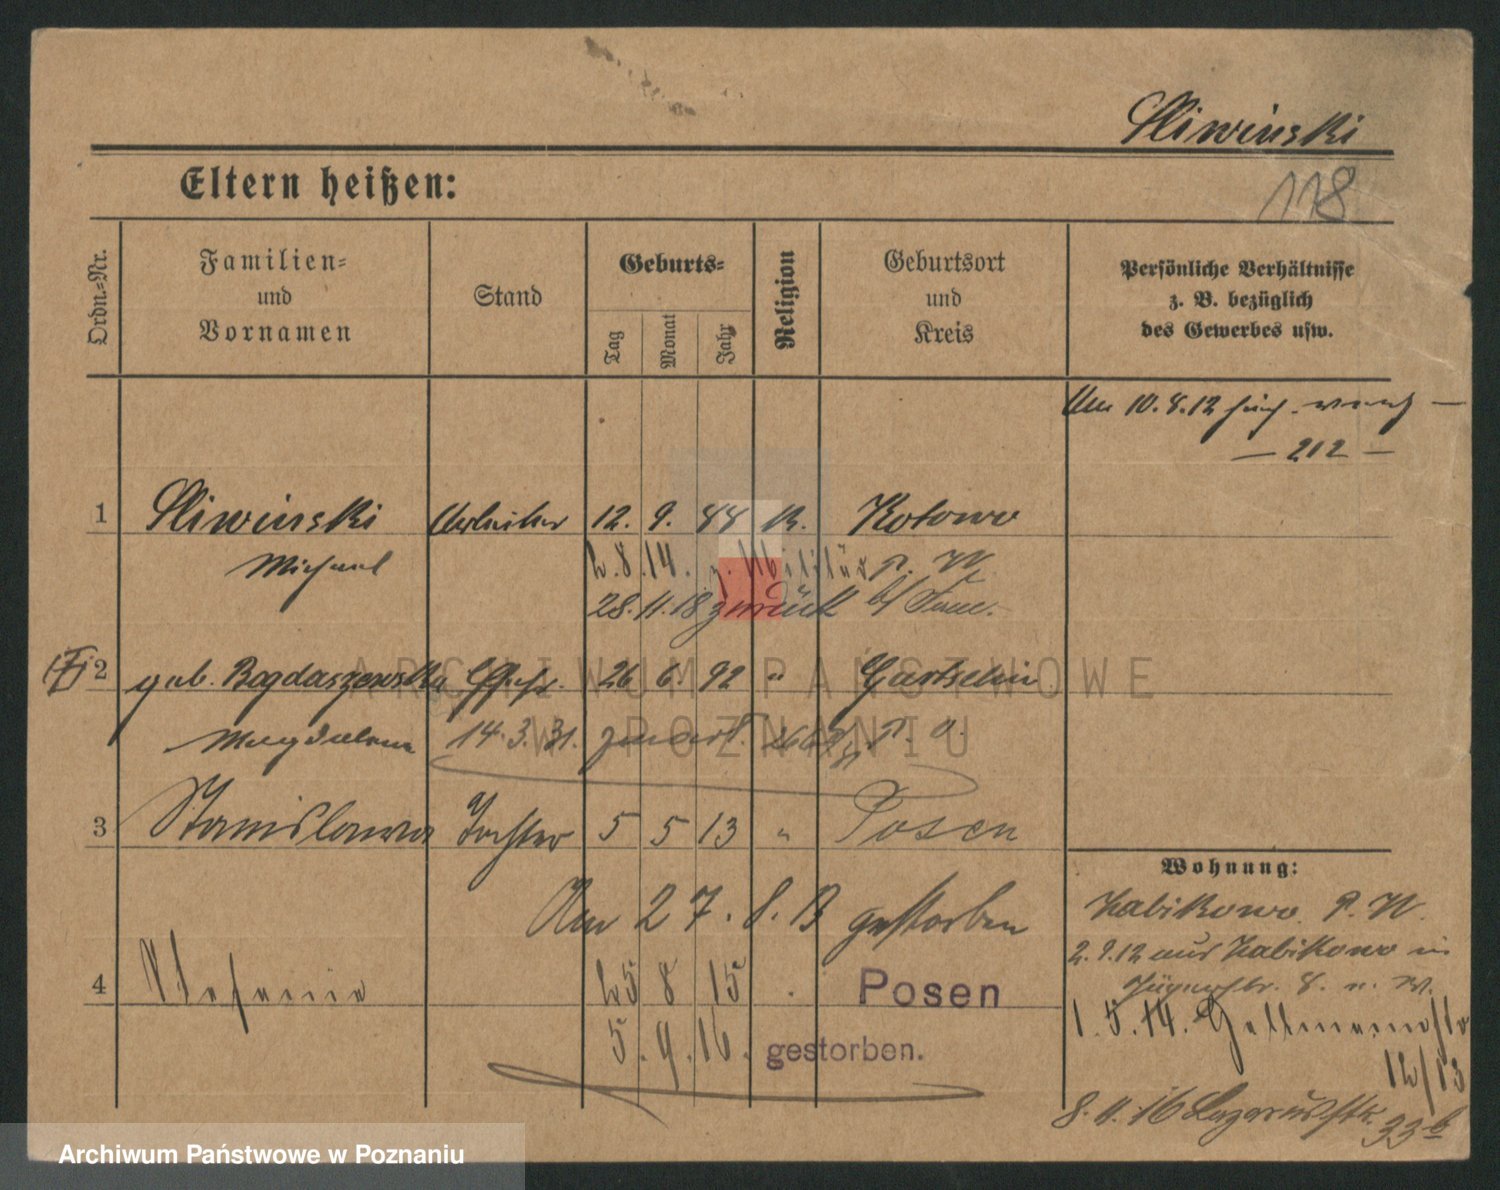 Sliwinski
Eltern heißen:
118
Ordn.-Nr.
Familien-
und
Vornamen
Stand
Geburts-
Tag
Monat
Jahr
Religion
Geburtsort
und
Kreis
Persönliche Verhältnisse
z. B. bezüglich
des Gewerbes usw.
Am 10.8.12
— 212 —
1 Sliwinski Arbeiter 12. 9. 88 K. Kotowo
Michael 2.8.14. z. Militär P. W.
28.11.18 zurück
2 geb. Bogdaszewska Ehefr. 26 6. 92 " Gartschin
Magdalena 14.3.31. P. O.
ARCHIWUM PAŃSTWOWE
W POZNANIU
3 Stanislawa Tochter 5 5 13 " Posen
Am 27. 8. 13 gestorben
4 Stefania 25 8 15 . Posen
5. 9. 16. gestorben.
Wohnung:
Zabikowo P. W.
2.9.12 aus Zabikowo in
8.
1.5.14.
12/13
8.11.16 Lazarusstr. 33b
Archiwum Państwowe w Poznaniu